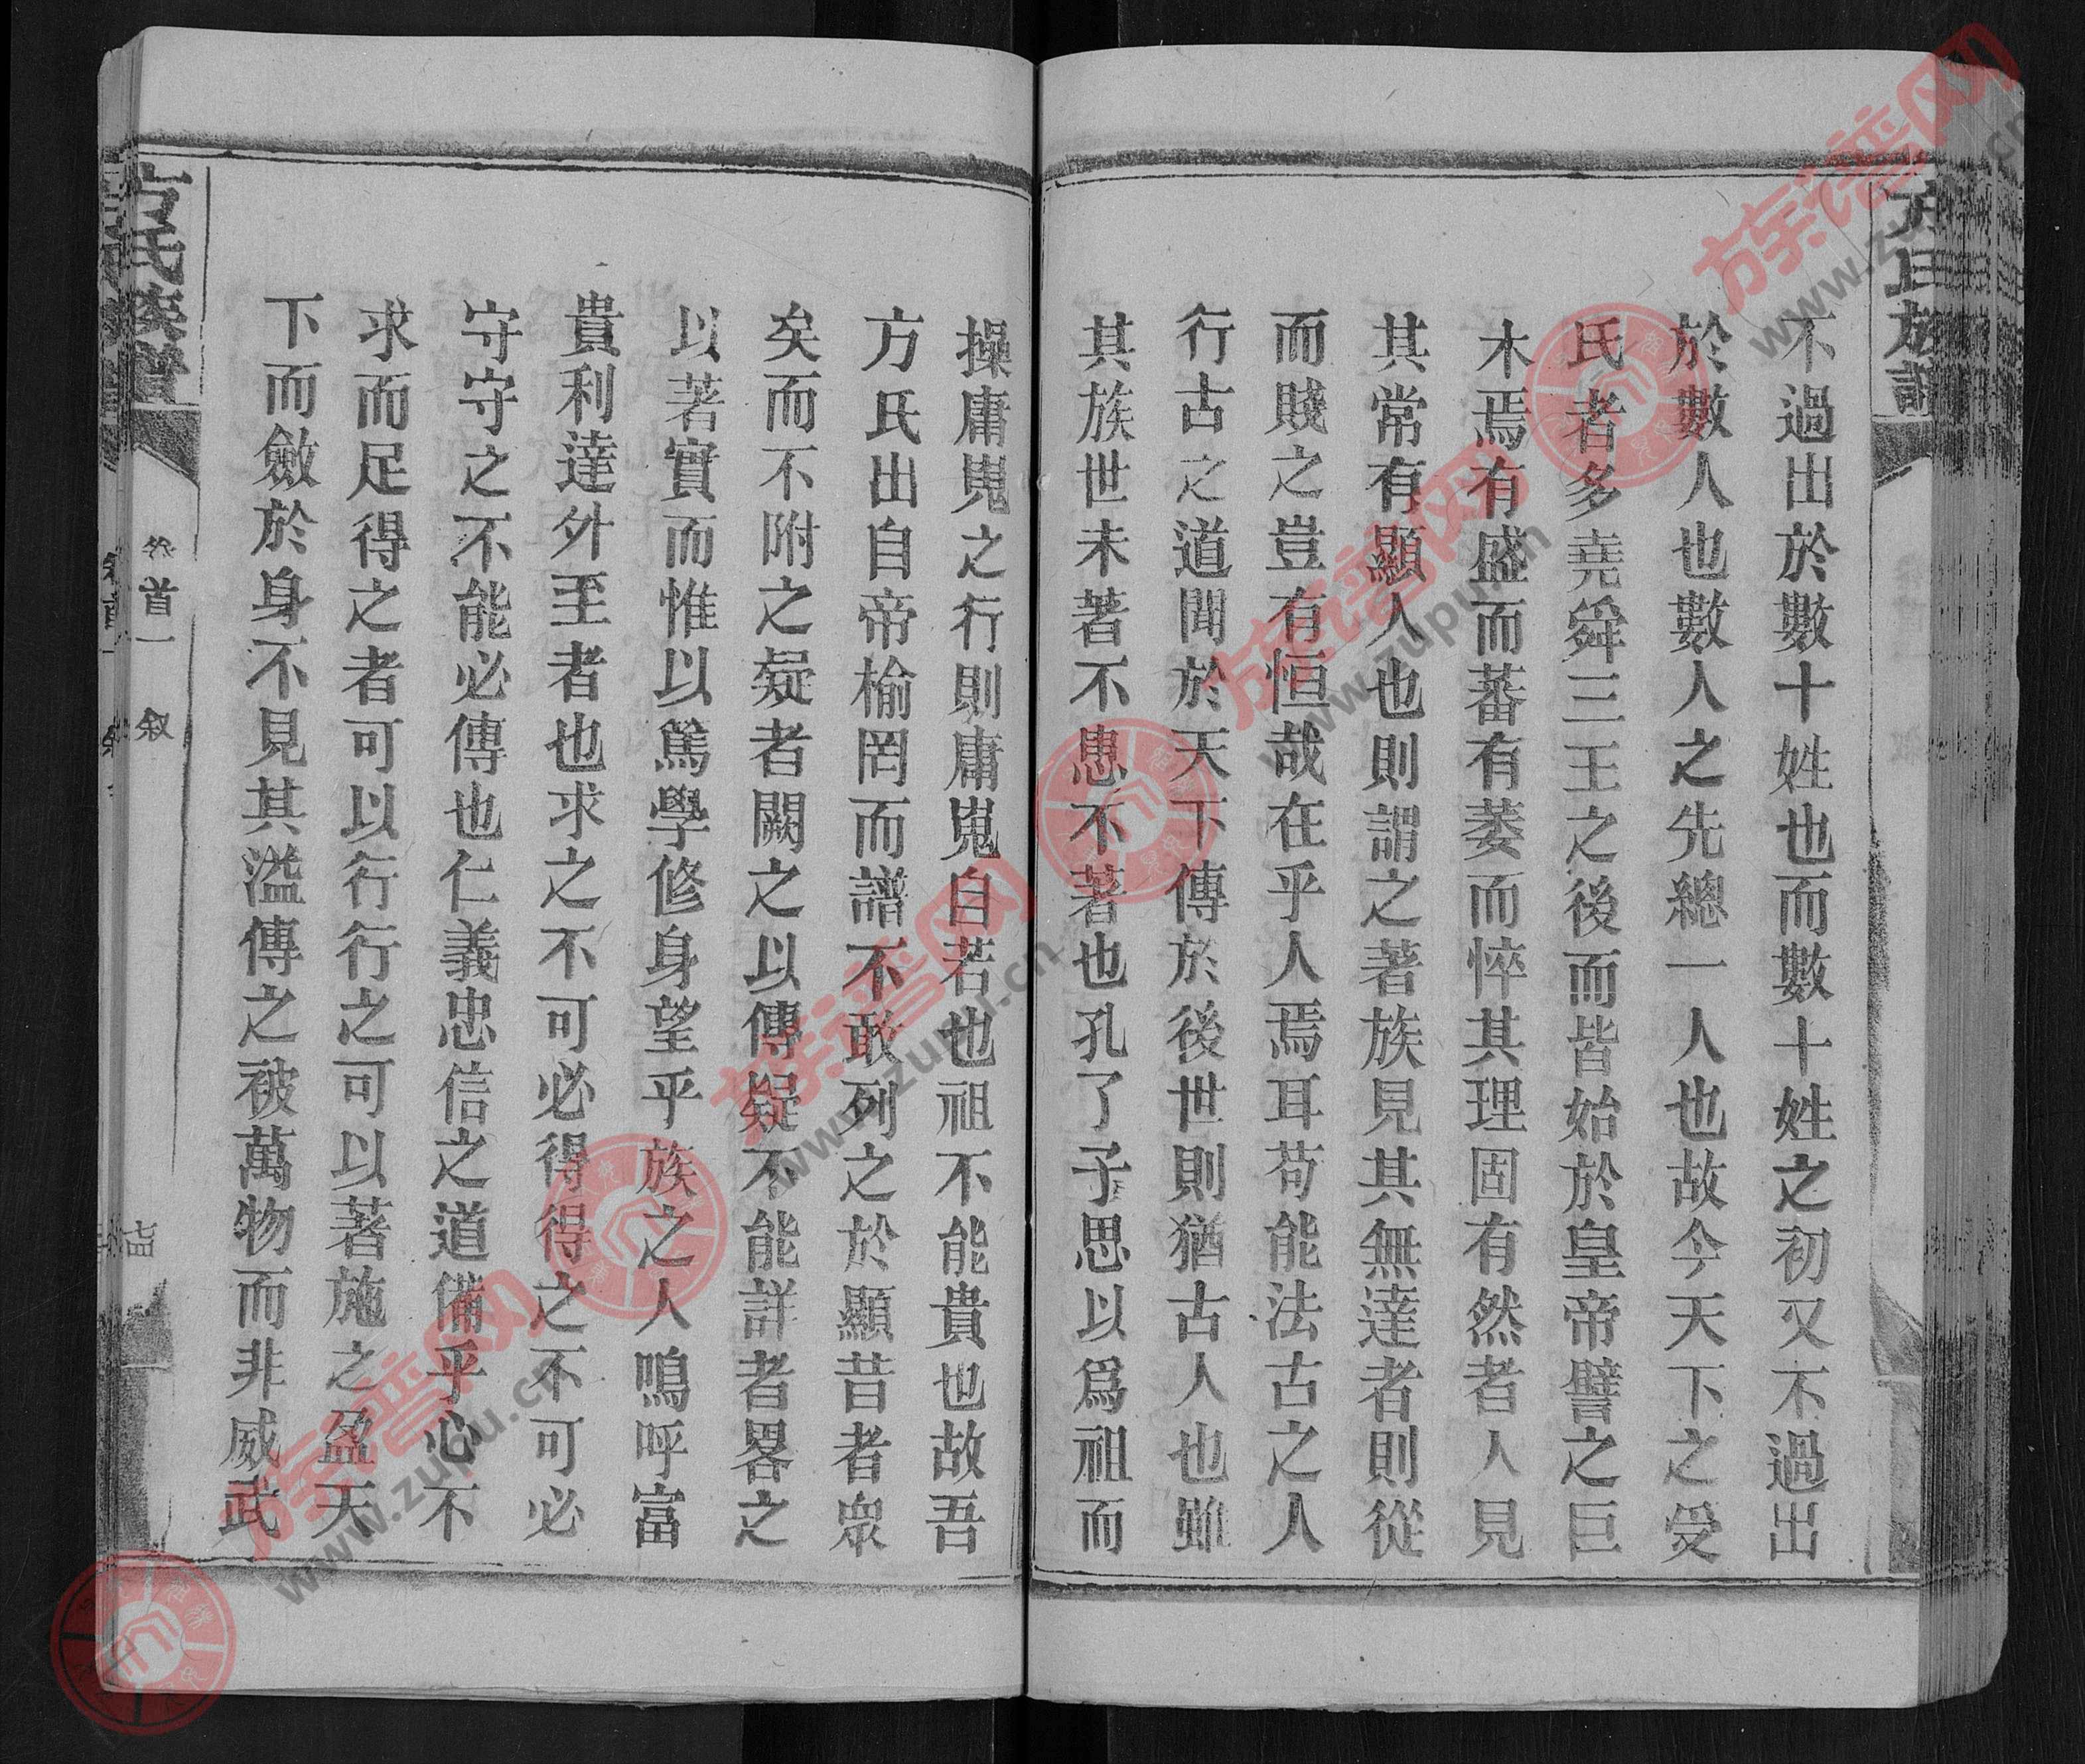 方氏族譜
不過出於數十姓也而數十姓之初又不過出
於數人也數人之先總一人也故今天下之受
氏者多堯舜三王之後而皆始於皇帝譬之巨
木焉有盛而蕃有萎而悴其理固有然者人見
其常有顯人也則謂之著族見其無達者則從
而賤之豈有恒哉在乎人焉耳苟能法古之人
行古之道聞於天下傳於後世則猶古人也雖
其族世未著不患不著也孔子子思以爲祖而
操庸嵬之行則庸嵬自若也祖不能貴也故吾
方氏出自帝榆罔而譜不敢列之於顯昔者眾
矣而不附之疑者闕之以傳疑不能詳者畧之
以著實而惟以篤學修身望乎族之人嗚呼富
貴利達外至者也求之不可必得得之不可必
守守之不能必傳也仁義忠信之道備乎心不
求而足得之者可以行行之可以著施之盈天
下而斂於身不見其溢傳之被萬物而非威武
方氏族譜
卷首一
叙
族谱网
www.zupu.cn
族谱网
www.zupu.cn
族谱网
www.zupu.cn
族谱网
www.zupu.cn